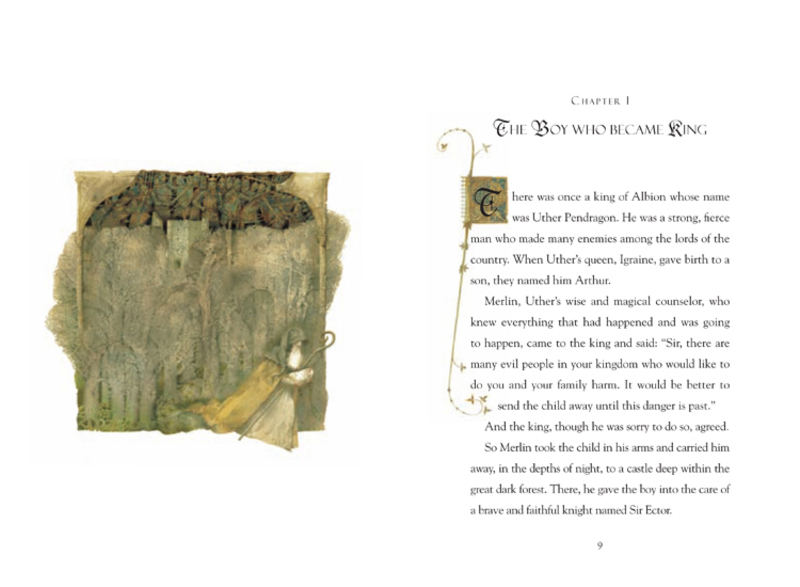 CHAPTER I
THE BOY WHO BECAME KING
There was once a king of Albion whose name
was Uther Pendragon. He was a strong, fierce
man who made many enemies among the lords of the
country. When Uther's queen, Igraine, gave birth to a
son, they named him Arthur.
Merlin, Uther's wise and magical counselor, who
knew everything that had happened and was going
to happen, came to the king and said: “Sir, there are
many evil people in your kingdom who would like to
do you and your family harm. It would be better to
send the child away until this danger is past.”
And the king, though he was sorry to do so, agreed.
So Merlin took the child in his arms and carried him
away, in the depths of night, to a castle deep within the
great dark forest. There, he gave the boy into the care of
a brave and faithful knight named Sir Ector.
9